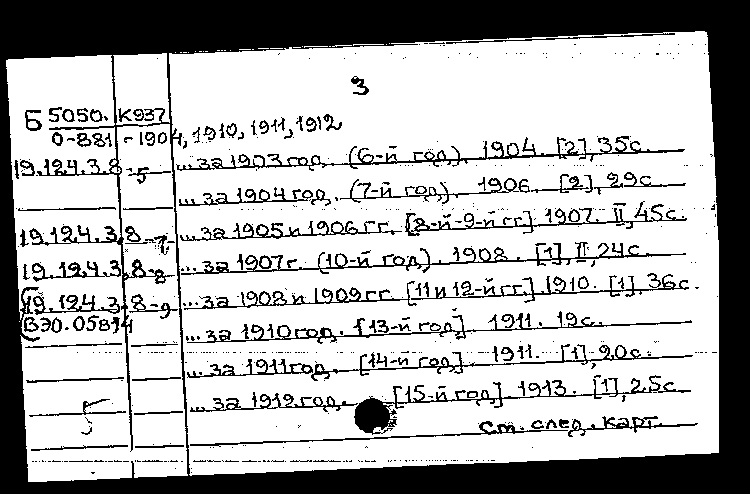 3
Б 5050. К937
0-881 -1904, 1910, 1911, 1912
19.124.3.8-5 ...за 1903 год. (6-й год). 1904. [2], 35с.
...за 1904 год. (7-й год). 1906. [2], 29с.
19.124.3.8-7 ...за 1905 и 1906 гг. [8-й-9-й гг]. 1907. II, 45с.
19.124.3.8-8 ...за 1907г. (10-й год). 1908. [1], II, 24с.
19.124.3.8-9 ...за 1908 и 1909 гг. [11 и 12-й гг]. 1910. [1], 36с.
...за 1910 год. [13-й год]. 1911. 19с.
...за 1911 год. [14-й год]. 1911. [1], 20с.
...за 1912 год. [15-й год]. 1913. [1], 25с.
5
См. след. карт.